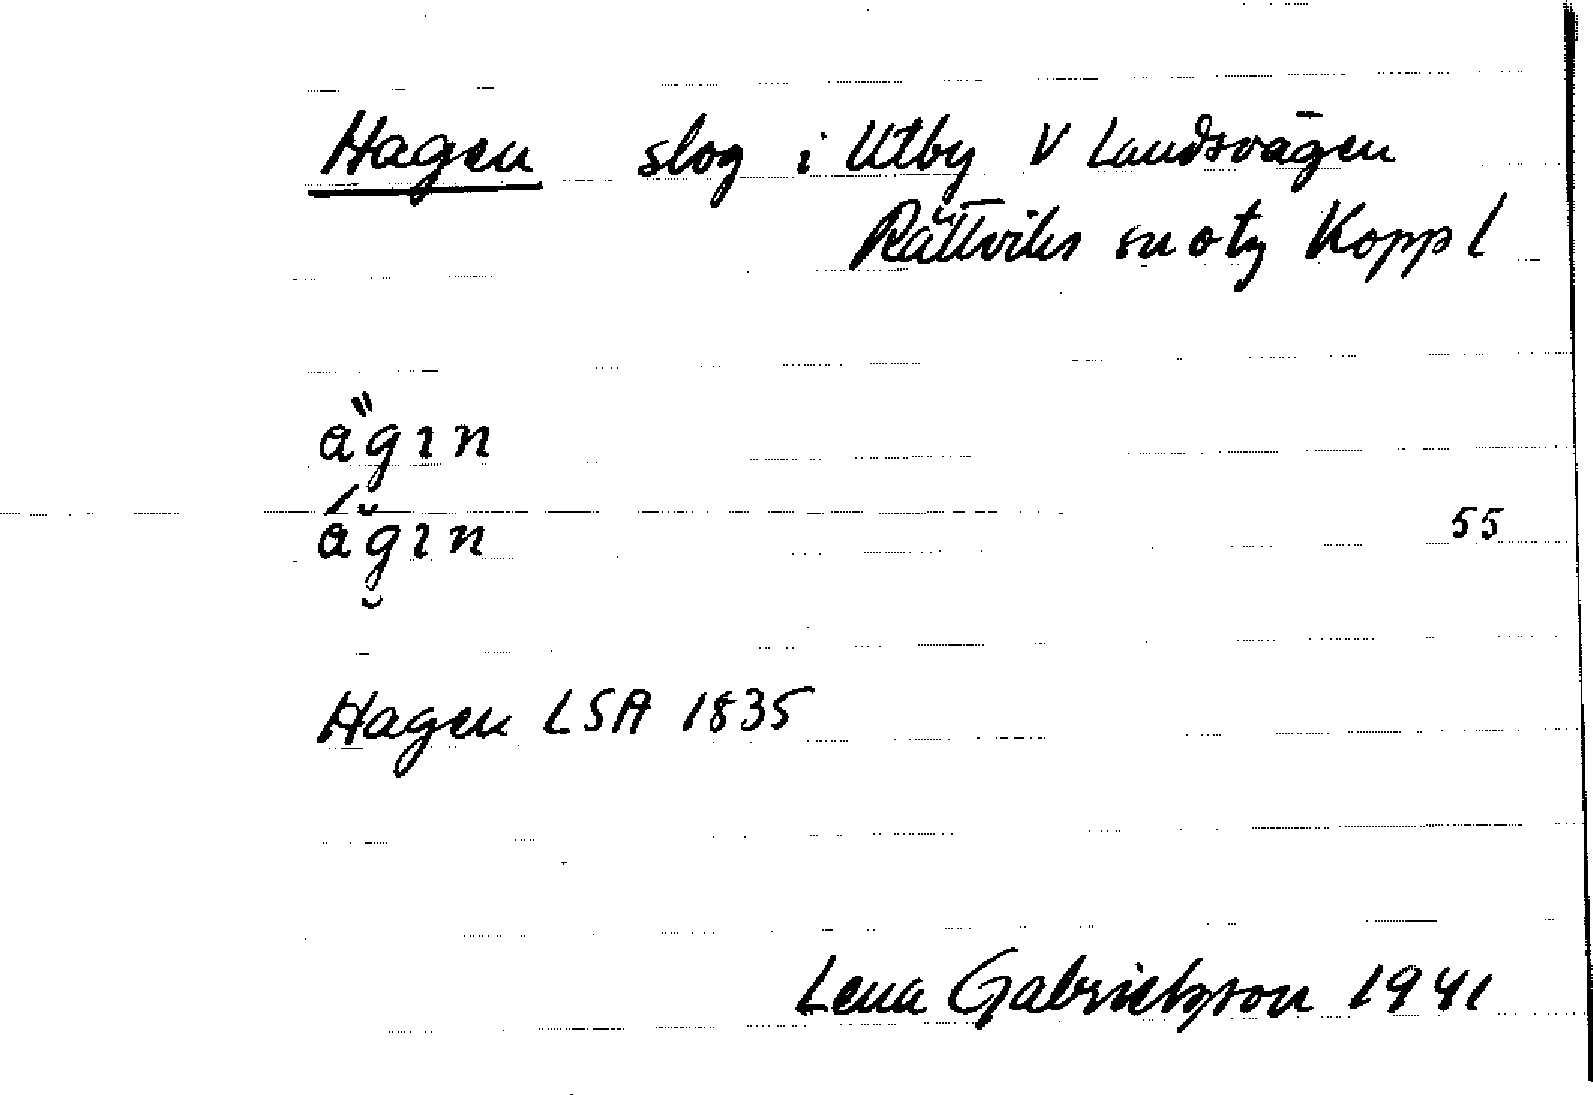 Hagen slog i Utby V Landsvägen
Rättviks sn o tg Koppl
a̋gın
ágın
55
Hagen LSA 1835
Lena Gabrielsson 1941